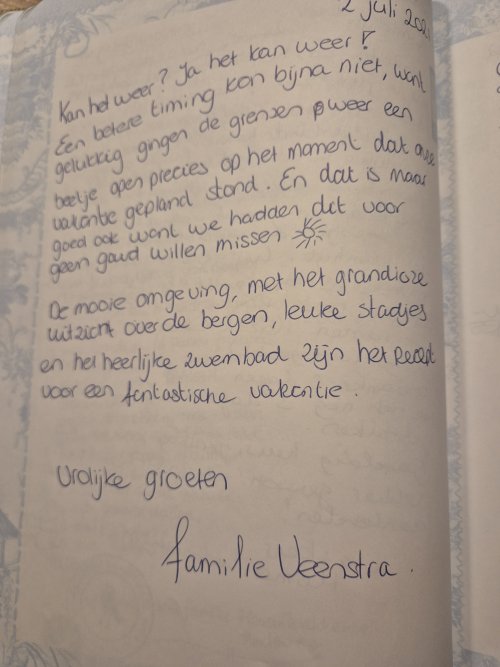 2 juli 202
Kan het weer? Ja het kan weer!
Een betere timing kon bijna niet, want
gelukkig gingen de grenzen weer een
beetje open precies op het moment dat onze
vakantie gepland stond. En dat is maar
goed ook want we hadden dit voor
geen goud willen missen
De mooie omgeving, met het grandioze
uitzicht over de bergen, leuke stadjes
en het heerlijke zwembad zijn het recept
voor een fantastische vakantie.
Vrolijke groeten
familie Veenstra.